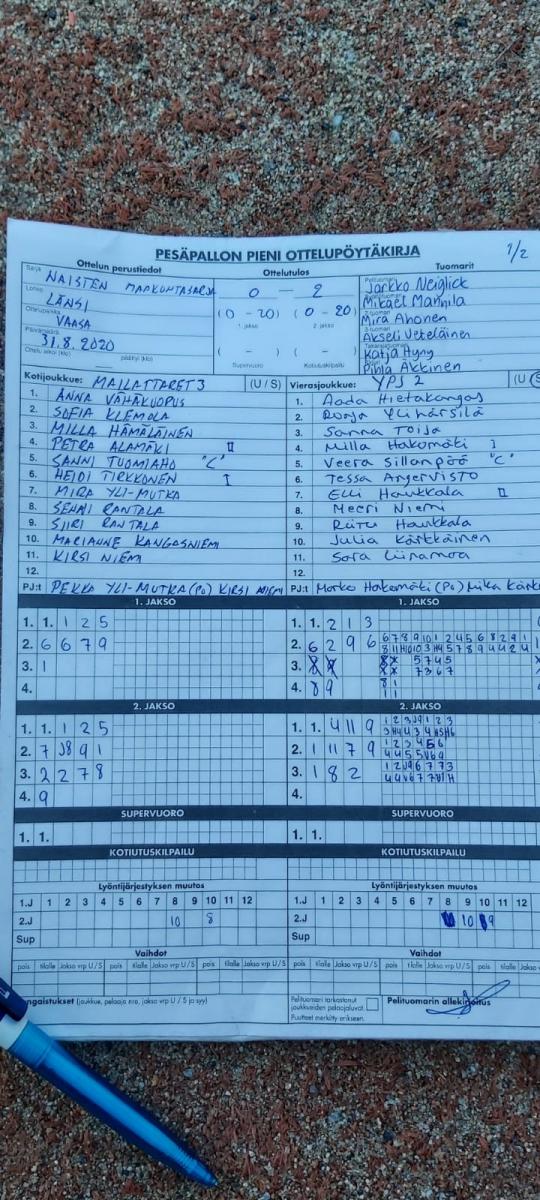 PESÄPALLON PIENI OTTELUPÖYTÄKIRJA 1/2
Ottelun perustiedot Ottelutulos Tuomarit
Sarja NAISTEN MAAKUNTASARJA
Lohko LÄNSI
Ottelupaikka VAASA
Päivämäärä 31.8.2020
Ottelu alkoi (klo) päättyi (klo)
0 - 2
(0 - 20) (0 - 20)
1. jakso 2. jakso
( - ) ( - )
Supervuoro Kotiutuskilpailu
Pelituomari Jarkko Neiglick
Mikael Mannila
2-tuomari Mira Ahonen
Akseli Veteläinen
Takarajatuomari Katja Hyny
Pihla Akkinen
Kotijoukkue: MAILATTARET 3 (U / S)
1. ANNA VÄHÄKUOPUS
2. SOFIA KLEMOLA
3. MILLA HÄMÄLÄINEN
4. PETRA ALAMÄKI II
5. SANNI TUOMIAHO "C"
6. HEIDI TIRKKONEN I
7. MIRA YLI-MUTKA
8. SENNI RANTALA
9. SIIRI RANTALA
10. MARIANNE KANGASNIEMI
11. KIRSI NIEMI
12.
PJ:t PEKKA YLI-MUTKA (Po) KIRSI NIEMI
Vierasjoukkue: YPJ 2 (U
1. Aada Hietakangas
2. Ronja Ylihärsilä
3. Sanna Toija
4. Milla Hakomäki I
5. Veera Sillanpää "C"
6. Tessa Anjervisto
7. Elli Haukkala II
8. Meeri Niemi
9. Riitu Haukkala
10. Julia Kärkkäinen
11. Sara Liinamaa
12.
PJ:t Marko Hakomäki (Po) Mika
1. JAKSO
1. 1. 1 2 5
2. 6 6 7 9
3. 1
4.
1. JAKSO
1. 1. 2 1 3
2. 6 2 9 6
3.
5 7 4 5
7 3 6 7
4. 8 9
8 1
1 1
2. JAKSO
1. 1. 1 2 5
2. 7 J8 9 1
3. 2 2 7 8
4. 9
2. JAKSO
1. 1. 4 11 9
2. 1 11 7 9
3. 1 8 2
4.
SUPERVUORO
1. 1.
SUPERVUORO
1. 1.
KOTIUTUSKILPAILU
KOTIUTUSKILPAILU
Lyöntijärjestyksen muutos
1.J 1 2 3 4 5 6 7 8 9 10 11 12
2.J 10 8
Sup
Lyöntijärjestyksen muutos
1.J 1 2 3 4 5 6 7 8 9 10 11 12
2.J 10 9
Sup
Vaihdot
pois tilalle Jakso vrp U/S pois tilalle Jakso vrp U/S
Vaihdot
pois tilalle Jakso vrp U/S pois tilalle Jakso vrp U/S
ngaistukset (joukkue, pelaaja nro, jakso vrp U / S ja syy)
Pelituomari tarkastanut joukkueiden pelaajaluvat.
Puutteet merkitty erikseen.
Pelituomarin allekirjoitus